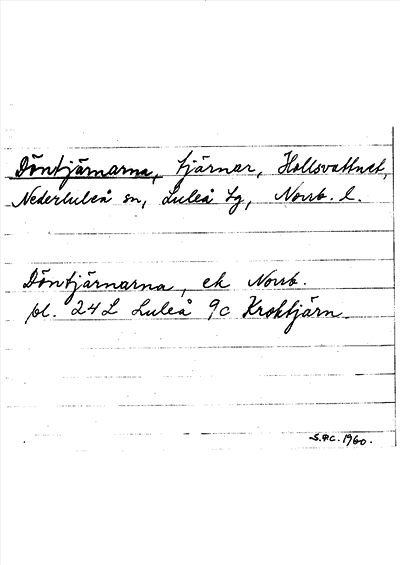 Döntjärnarna, tjärnar, Hollsvattnet,
Nederluleå sn, Luleå tg, Norrb. l.
Döntjärnarna, ek Norrb.
bl. 24 L Luleå 9c Kroktjärn
S.ÅC. 1960.